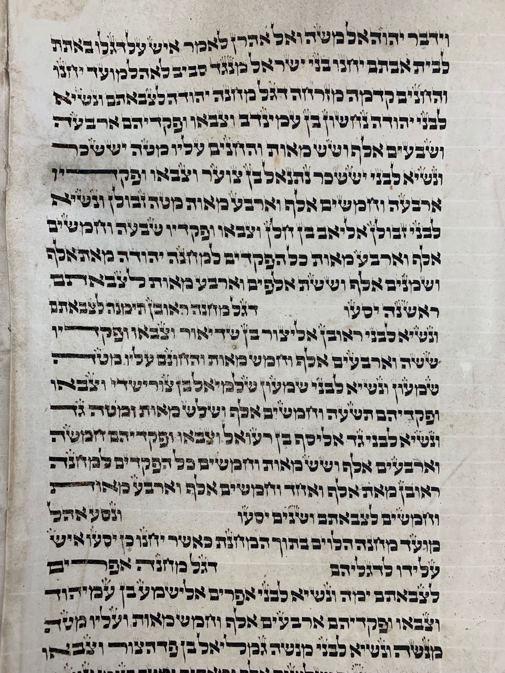 וידבר יהוה אל משה ואל אהרן לאמר איש על דגלו באתת
לבית אבתם יחנו בני ישראל מנגד סביב לאהל מועד יחנו
והחנים קדמה מזרחה דגל מחנה יהודה לצבאתם ונשיא
לבני יהודה נחשון בן עמינדב וצבאו ופקדיהם ארבעה
ושבעים אלף ושש מאות והחנים עליו מטה יששכר
ונשיא לבני יששכר נתנאל בן צוער וצבאו ופקדיו
ארבעה וחמשים אלף וארבע מאות מטה זבולן ונשיא
לבני זבולן אליאב בן חלן וצבאו ופקדיו שבעה וחמשים
אלף וארבע מאות כל הפקדים למחנה יהודה מאת אלף
ושמנים אלף וששת אלפים וארבע מאות לצבאתם
ראשנה יסעו דגל מחנה ראובן תימנה לצבאתם
ונשיא לבני ראובן אליצור בן שדיאור וצבאו ופקדיו
ששה וארבעים אלף וחמש מאות והחונם עליו מטה
שמעון ונשיא לבני שמעון שלמיאל בן צורישדי וצבאו
ופקדיהם תשעה וחמשים אלף ושלש מאות ומטה גד
ונשיא לבני גד אליסף בן רעואל וצבאו ופקדיהם חמשה
וארבעים אלף ושש מאות וחמשים כל הפקדים למחנה
ראובן מאת אלף ואחד וחמשים אלף וארבע מאות
וחמשים לצבאתם ושנים יסעו ונסע אהל
מועד מחנה הלוים בתוך המחנת כאשר יחנו כן יסעו איש
על ידו לדגליהם דגל מחנה אפרים
לצבאתם ימה ונשיא לבני אפרים אלישמע בן עמיהוד
וצבאו ופקדיהם ארבעים אלף וחמש מאות ועליו מטה
מנשה ונשיא לבני מנשה גמליאל בן פדהצור וצבאו